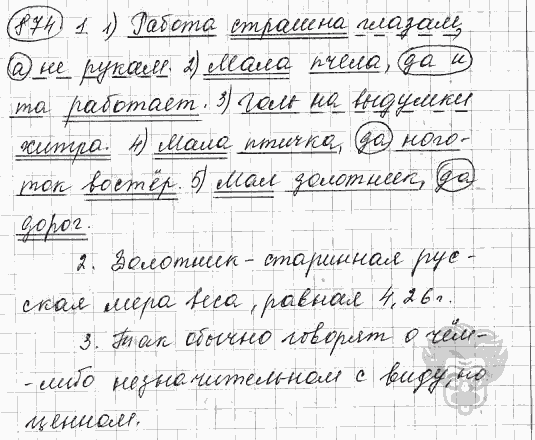 874 1 1) Работа страшна глазам,
а не рукам. 2) Мала пчела, да и
та работает. 3) Голь на выдумки
хитра. 4) Мала птичка, да ного-
ток востёр. 5) Мал золотник, да
дорог.
2. Золотник - старинная рус-
ская мера веса, равная 4,26 г.
3. Так обычно говорят о чём-
-либо незначительном с виду, но
ценном.